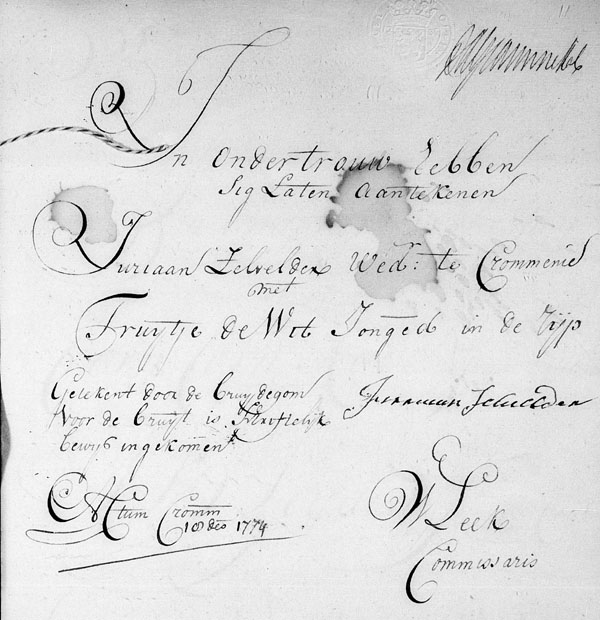 In ondertrouw hebben
sig Laten Aantekenen
Juriaan Zelvelder Wedr: te Crommenie
met
Truijtje de Wit Jonged in de Rijp
Getekent door de bruydegom
Voor de bruyt is schriftelijk
bewijs ingekomen
Juriaan
Actum Cromm
10 1774
W Leek
Commissaris